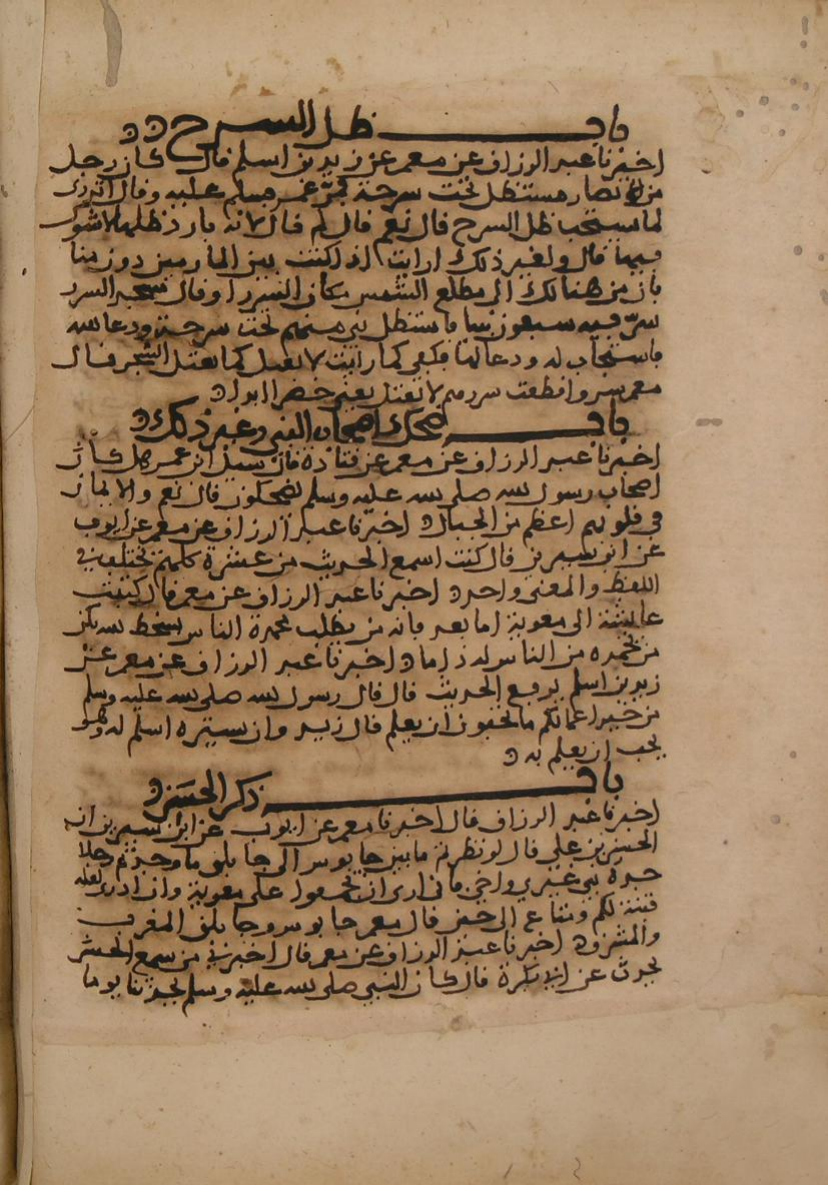 باب ظل السرح
اخبرنا عبد الرزاق عن معمر عن زيد بن اسلم قال كان رجل
من الانصار مستظل تحت سرحة فمر عمر فسلم عليه وقال اتدري
لما يستحب ظل السرح قال نعم قال لم قال لانه بارد ظلها لا شوك
فيها قال ولغير ذلك ارايت اذا كنت بين المازمين دون منا
فان من هنالك الى مطلع الشمس مكان السرر او قال شعبة السرر
سر فيه سبعون نبيا فاستظل نبي منهم تحت سرحة ودعا الله
فاستجاب له ودعا لها فهي كما رايت لا تعبل كما يعبل الشجر قال
معمر سروا قطعت سررهم لا تعتل يعني خضرا ابدا
باب ضحك اصحاب النبي وغير ذلك
اخبرنا عبد الرزاق عن معمر عن قتادة قال سيل ابن عمر هل كان
اصحاب رسول الله صلى الله عليه وسلم يضحكون قال نعم والايمان
في قلوبهم اعظم من الجبال اخبرنا عبد الرزاق عن معمر عن ايوب
عن ابن سيرين قال كنت اسمع الحديث من عشرة كلهم يختلف في
اللفظ والمعنى واحد اخبرنا عبد الرزاق عن معمر قال كتبت
عايشة الى معوية اما بعد فانه من يطلب محمدة الناس بسخط الله يكن
من يحمده من الناس له ذاما اخبرنا عبد الرزاق عن معمر عن
زيد بن اسلم يرفع الحديث قال قال رسول الله صلى الله عليه وسلم
من خير اعمالكم ما تخفون ان يعلم قال زيد وان يستره اسلم له وهو
يحب ان يعلم به
باب ذكر الحسن
اخبرنا عبد الرزاق قال اخبرنا معمر عن ايوب عن ابن سيرين ان
الحسن بن علي قال لو نظرتم ما بين جابوس الى جابلق ما وجدتم رجلا
جده نبي غيري واخي فاني ارى ان تجمعوا على معوية وان ادري لعله
فتنة لكم ومتاع الى حين قال معمر جابوس وجابلق المغرب
والمشرق اخبرنا عبد الرزاق عن معمر قال اخبرني من سمع الحسن
يحدث عن ابي بكرة قال كان النبي صلى الله عليه وسلم يحدثنا يوما